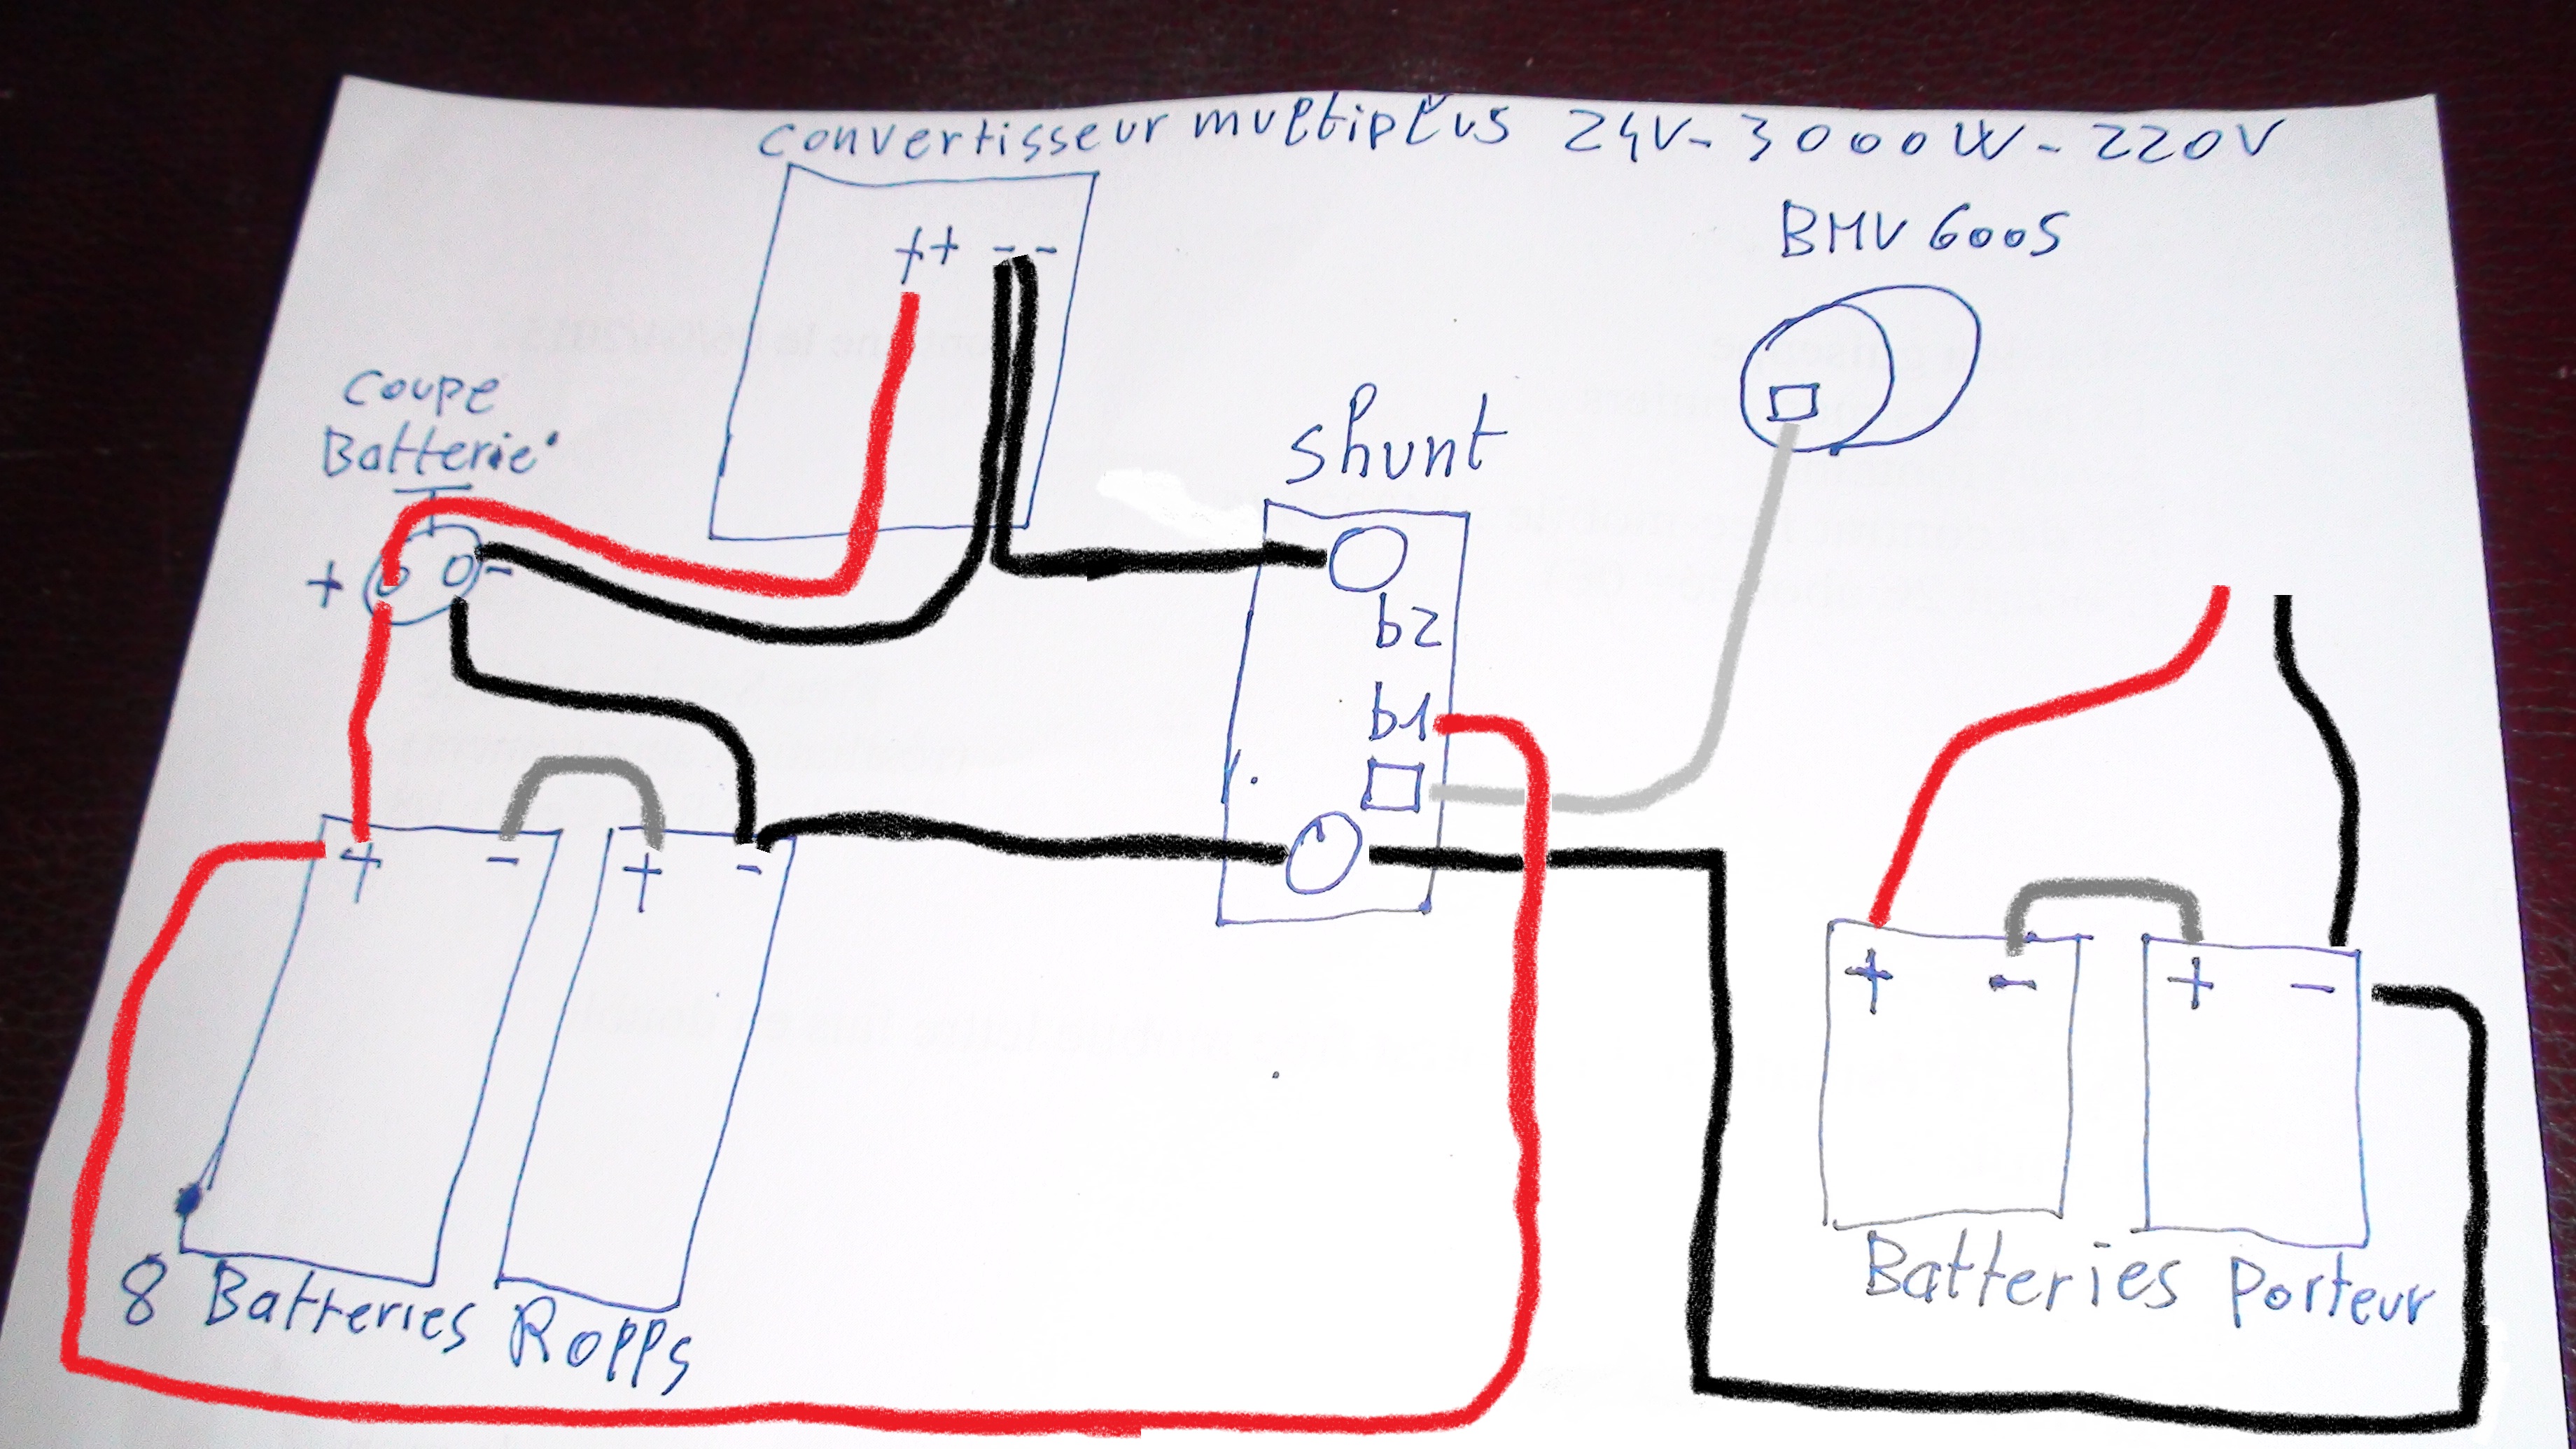 convertisseur multiplus 24V-3000W-220V
BMV 600S
Coupe
Batterie
shunt
++ --
+ -
b2
b1
+ - + -
+ - + -
Batteries Porteur
8 Batteries Rolls